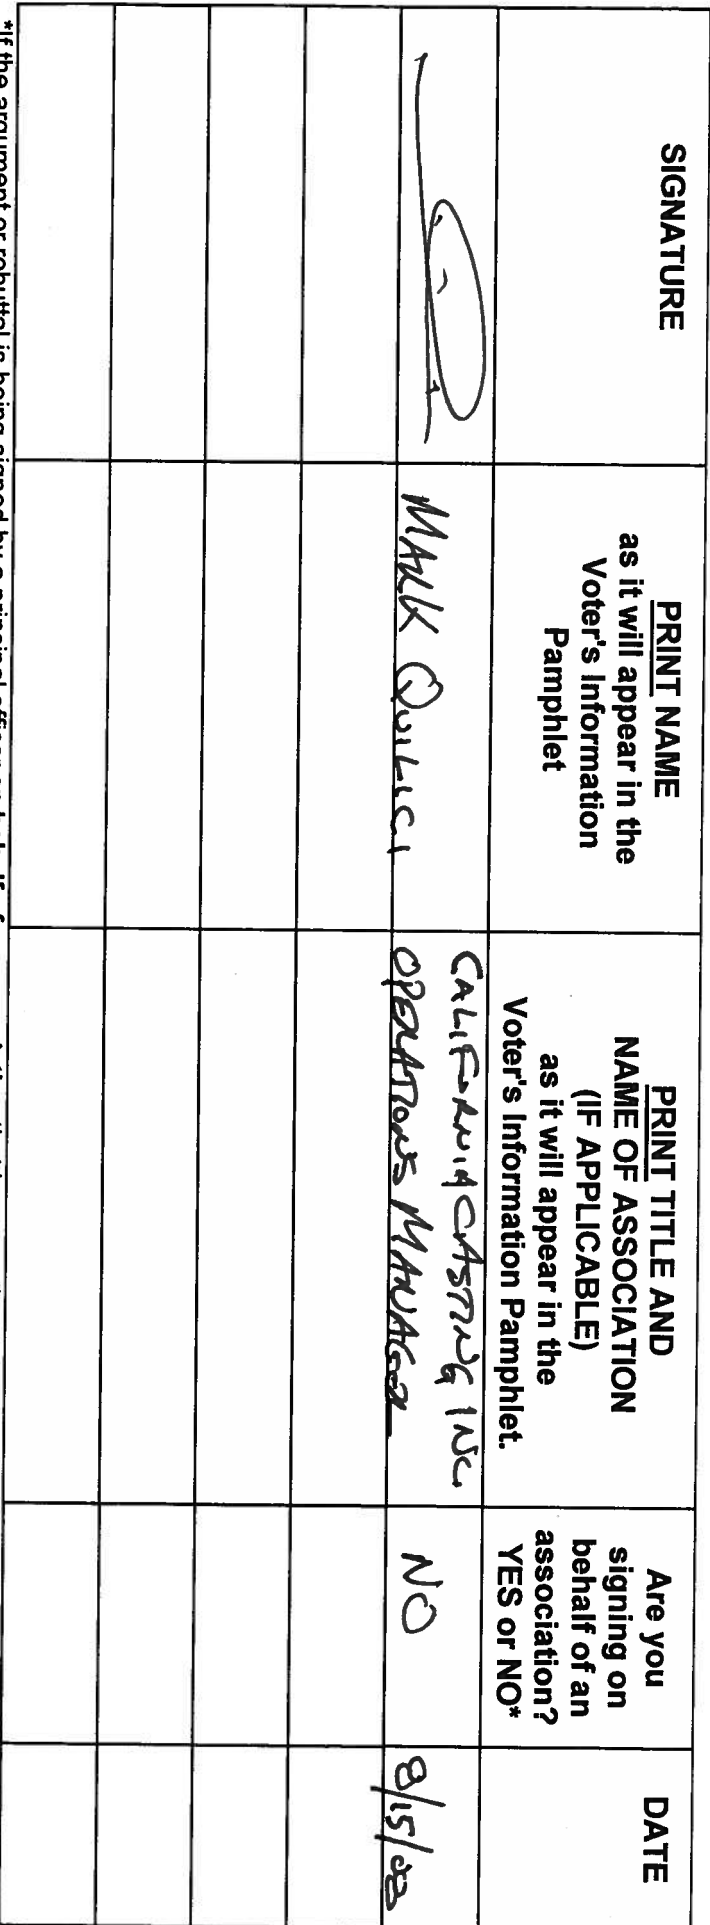 SIGNATURE
PRINT NAME
as it will appear in the
Voter's Information
Pamphlet
PRINT TITLE AND
NAME OF ASSOCIATION
(IF APPLICABLE)
as it will appear in the
Voter's Information Pamphlet.
Are you
signing on
behalf of an
association?
YES or NO*
DATE
MARK QUILICI
CALIFORNIA CASTING INC.
OPERATIONS MANAGER
NO
8/15/08
*If the argument or rebuttal is being signed by a principal officer on behalf of